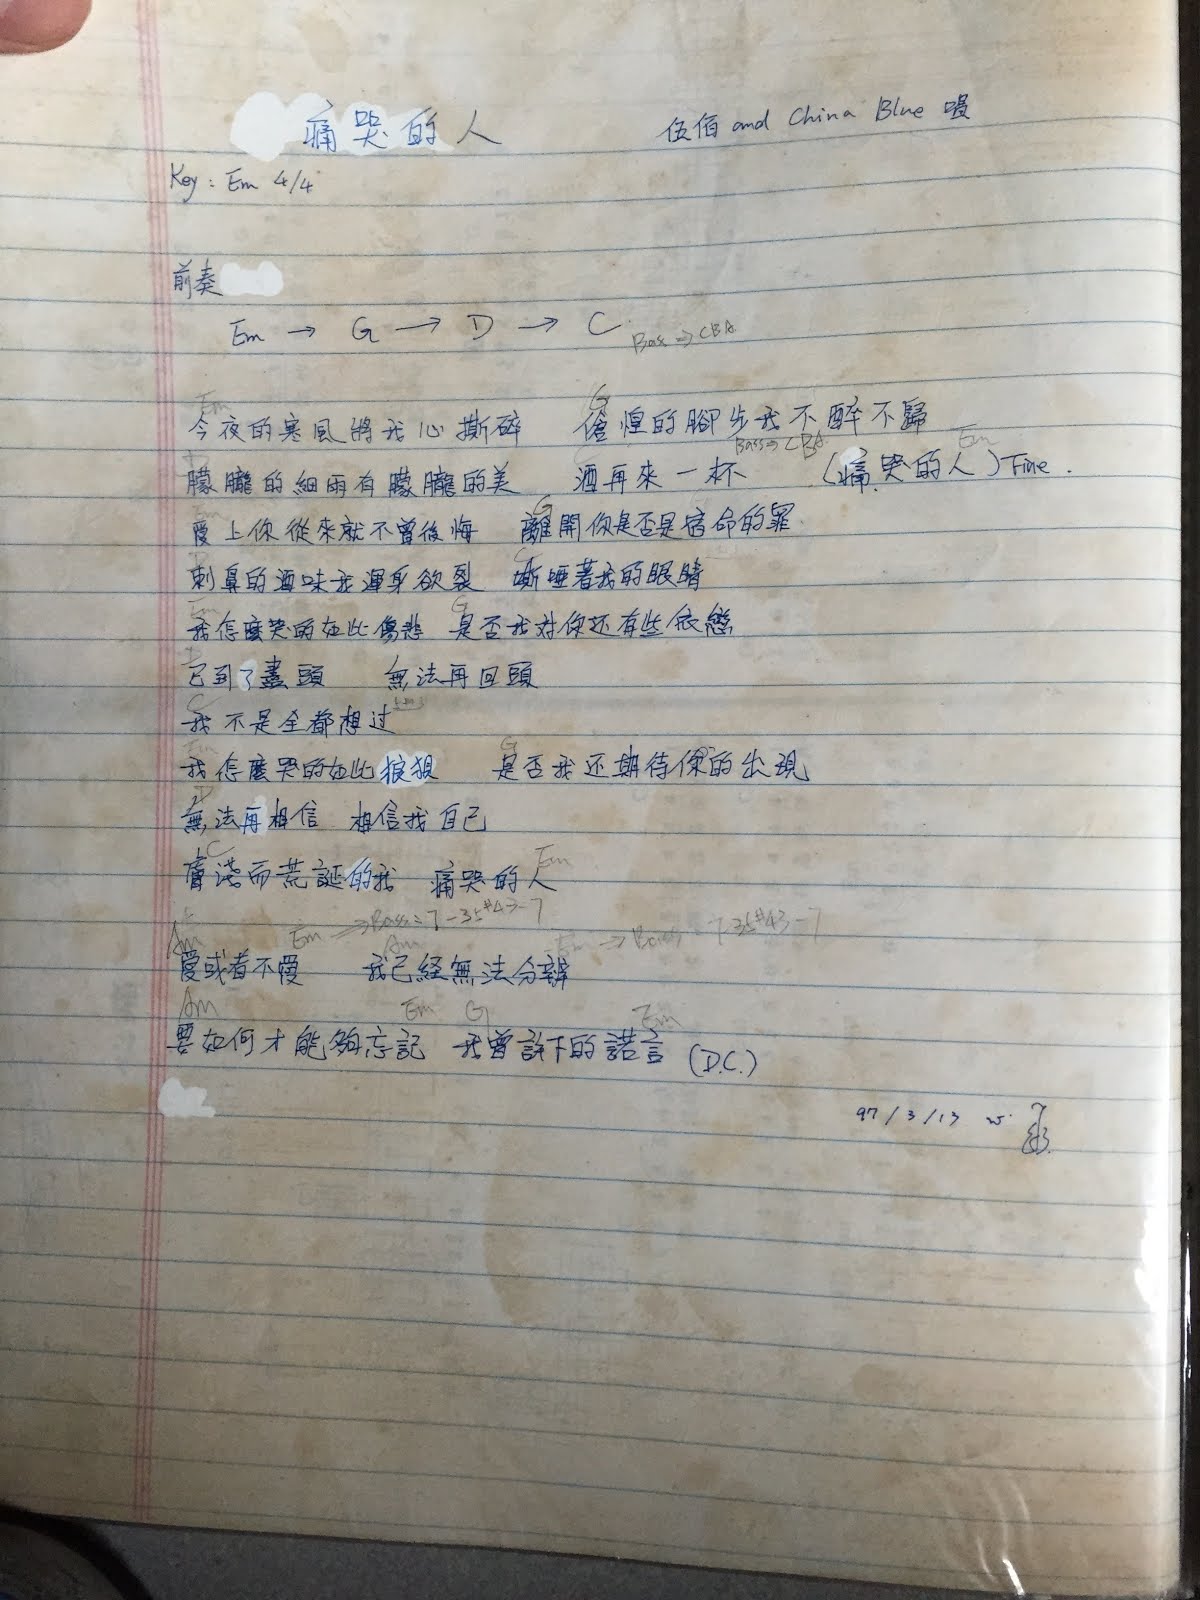 痛哭的人 伍佰 and China Blue 唱
Key: Em 4/4
前奏
Em → G → D → C Bass ⇒ CBA
Em G
今夜的寒風將我心撕碎 傖惶的腳步我不醉不歸
D C Bass ⇒ CBA Em
朦朧的細雨有朦朧的美 酒再來一杯 (痛哭的人) Fine.
Em G
愛上你從來就不曾後悔 離開你是否是宿命的罪
D C
刺鼻的酒味我渾身欲裂 嘶啞著我的眼睛
Em G
我怎麼哭的如此傷悲 是否我对你还有些依戀
D
已到了盡頭 無法再回頭
C
我不是全都想过
Em G
我怎麼哭的如此狼狽 是否我还期待你的出現
D
無法再相信 相信我自己
C Em
膚淺而荒誕的我 痛哭的人
Am Em ⇒ Bass: 7-35#43-7 Am Em → Bass: 7-35#43-7
愛或者不愛 我已経無法分辨
Am Em G Em
要如何才能夠忘記 我曾許下的諾言 (D.C.)
97/3/13 w.